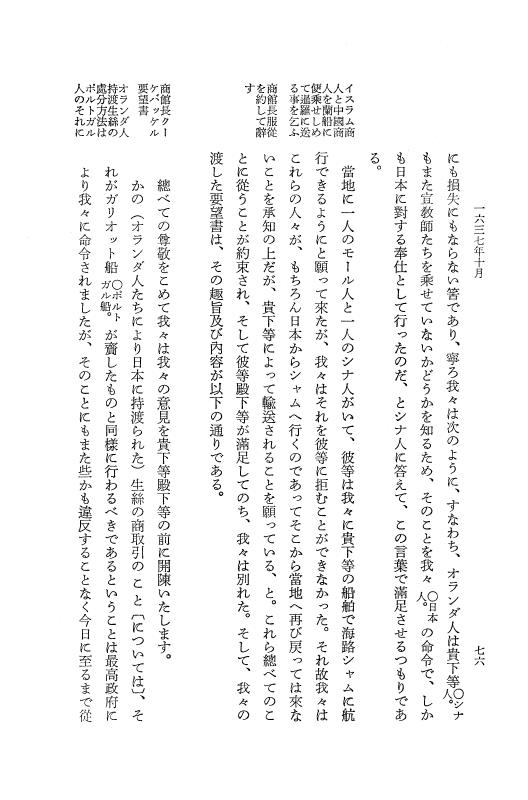 一六三七年十月
七六
にも損失にもならない筈であり、寧ろ我々は次のように、すなわち、オランダ人は貴下等〇シナ人。
もまた宣教師たちを乗せていないかどうかを知るため、そのことを我々〇日本人。の命令で、しか
も日本に對する奉仕として行ったのだ、とシナ人に答えて、この言葉で滿足させるつもりであ
る。
イスラム商
人と中國商
人を蘭船に
便乘せしめ
て暹羅に送
る事を乞ふ
當地に一人のモール人と一人のシナ人がいて、彼等は我々に貴下等の船舶で海路シャムに航
行できるようにと願って來たが、我々はそれを彼等に拒むことができなかった。それ故我々は
これらの人々が、もちろん日本からシャムへ行くのであってそこから當地へ再び戻っては來な
いことを承知の上だが、貴下等によって輸送されることを願っている、と。これら總べてのこ
商館長服從
を約して辭
す
とに從うことが約束され、そして彼等殿下等が滿足してのち、我々は別れた。そして、我々の
渡した要望書は、その趣旨及び內容が以下の通りである。
商館長クー
ケバッケル
要望書
總べての尊敬をこめて我々は我々の意見を貴下等殿下等の前に開陳いたします。
オランダ人
持渡生絲の
處分方法は
ポルトガル
人のそれに
かの（オランダ人たちにより日本に持渡られた）生絲の商取引のこと〔については〕、そ
れがガリオット船〇ポルトガル船。が齎したものと同樣に行わるべきであるということは最高政府に
より我々に命令されましたが、そのことにもまた些かも違反することなく今日に至るまで從